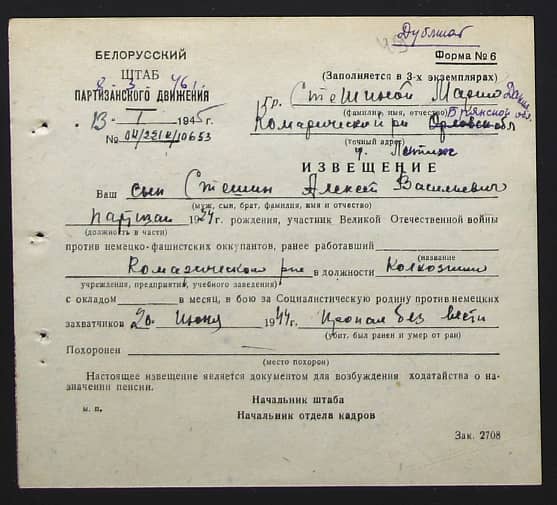 Дубликат
БЕЛОРУССКИЙ
ШТАБ
ПАРТИЗАНСКОГО ДВИЖЕНИЯ
8 3 461
13 I 1945г.
№ 04/2314/10653
Форма № 6
(Заполняется в 3-х экземплярах)
гр. Стешиной Марии
(фамилия, имя, отчество) Брянской обл.
Комаричский р-н Орловской обл
(точный адрес)
ИЗВЕЩЕНИЕ
Ваш сын Стешин Алексей Васильевич
(муж, сын, брат, фамилия, имя и отчество)
партизан 1924г. рождения, участник Великой Отечественной войны
(должность в части)
против немецко-фашистских оккупантов, ранее работавший
(название
Комаричском р-не в должности Колхозник
учреждения, предприятия, учебного заведения)
с окладом в месяц, в бою за Социалистическую родину против немецких
захватчиков 20 июня 1944г. Пропал без вести
(убит. был ранен и умер от ран)
Похоронен
(место похорон)
Настоящее извещение является документом для возбуждения ходатайства о на-
значении пенсии.
Начальник штаба
м. п.
Начальник отдела кадров
Зак. 2708